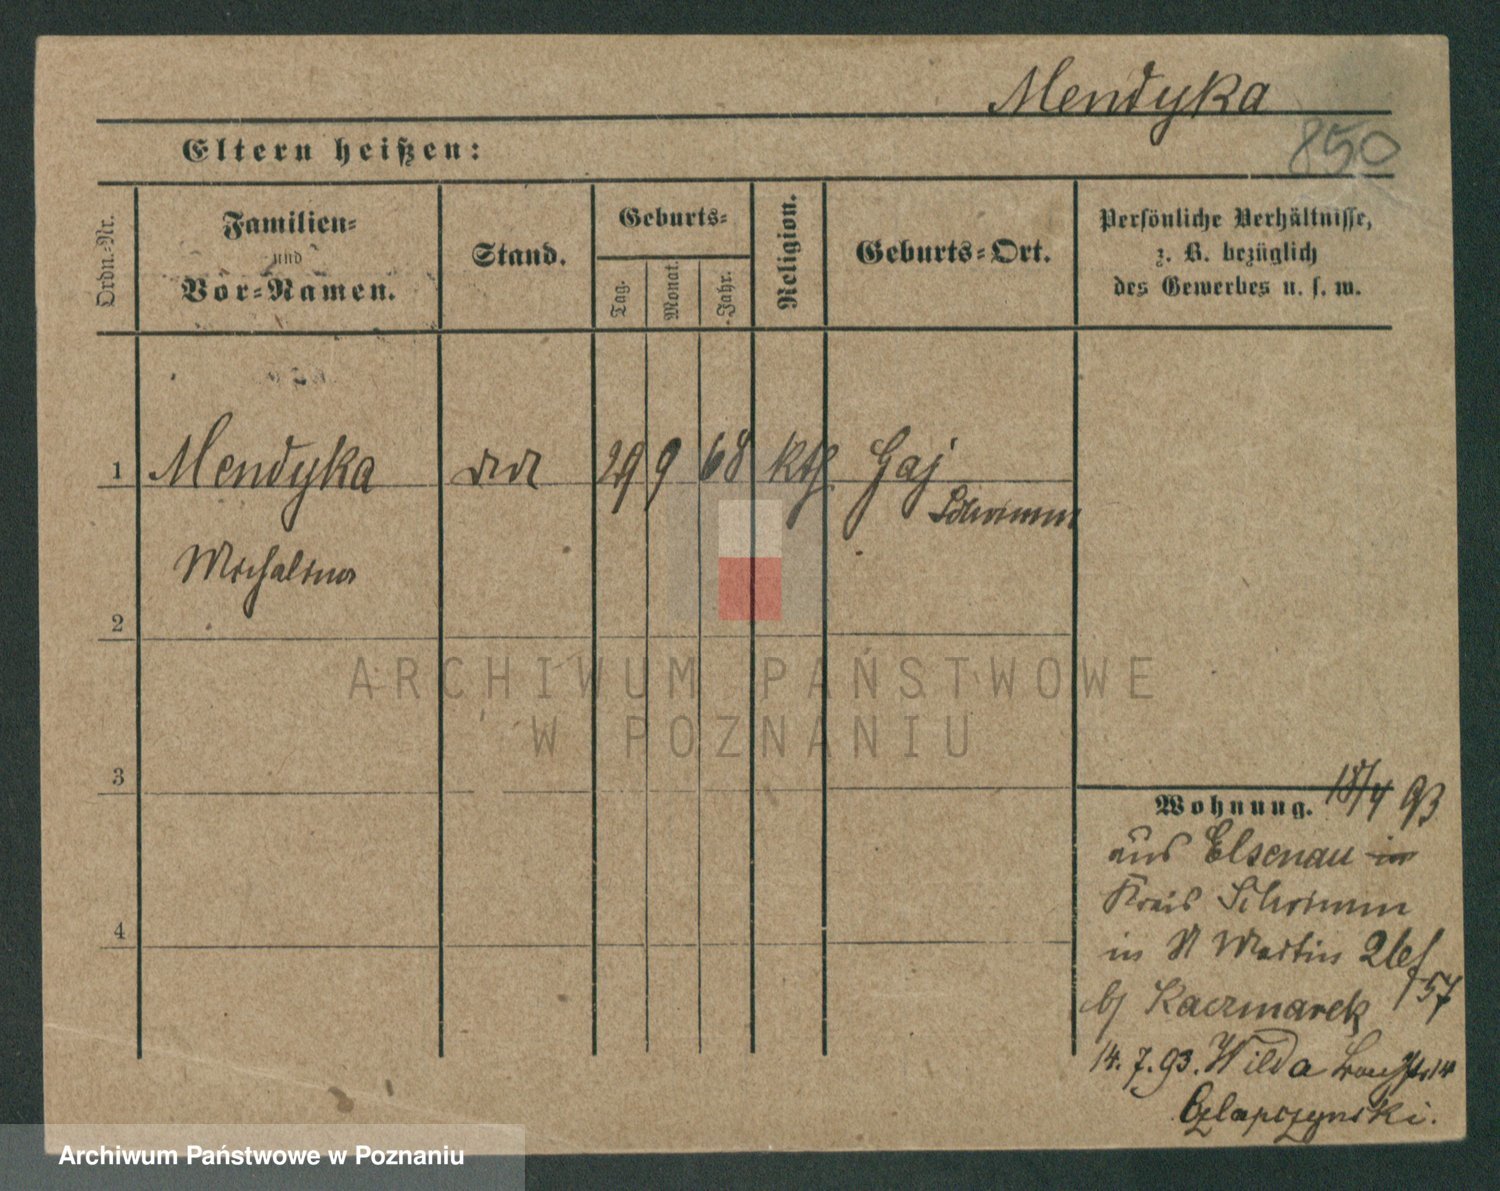 Mendyka
850
Eltern heißen:
Ordn.-Nr.
Familien-
und
Vor-Namen.
Stand.
Geburts-
Tag.
Monat.
Jahr.
Religion.
Geburts-Ort.
Persönliche Verhältnisse,
z. B. bezüglich
des Gewerbes u. s. w.
1 Mendyka 29 9 68 kth Gaj
Schrimm
Michalina
2
3
4
Wohnung. 18/4 93
aus Elsenau in
Kreis Schrimm
in St Martin
57
bei Kaczmarek
14. 7. 93. Wilda 14
Czlapczynski.
ARCHIWUM PAŃSTWOWE
W POZNANIU
Archiwum Państwowe w Poznaniu